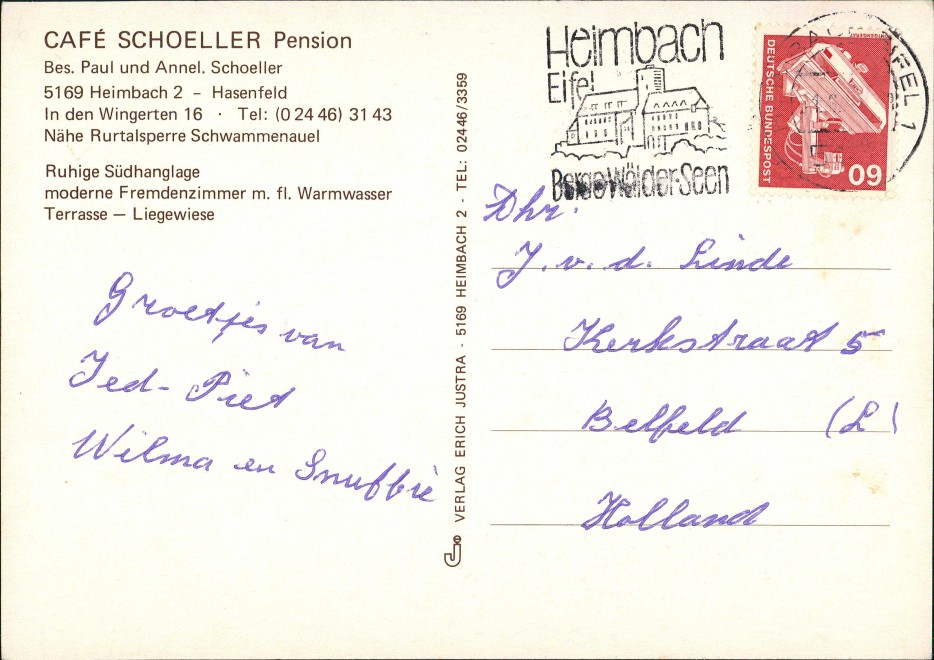 CAFÉ SCHOELLER Pension
Bes. Paul und Annel. Schoeller
5169 Heimbach 2 – Hasenfeld
In den Wingerten 16 · Tel: (0 24 46) 31 43
Nähe Rurtalsperre Schwammenauel
Ruhige Südhanglage
moderne Fremdenzimmer m. fl. Warmwasser
Terrasse – Liegewiese
Groetjes van
Jed - Piet
Wilma en Snuffie
VERLAG ERICH JUSTRA · 5169 HEIMBACH 2 · TEL.: 02446/3359
Heimbach
Eifel
Berge-Wälder-Seen
DEUTSCHE BUNDESPOST
60
Dhr.
J. v. d. Linde
Kerkstraat 5
Belfeld (L)
Holland